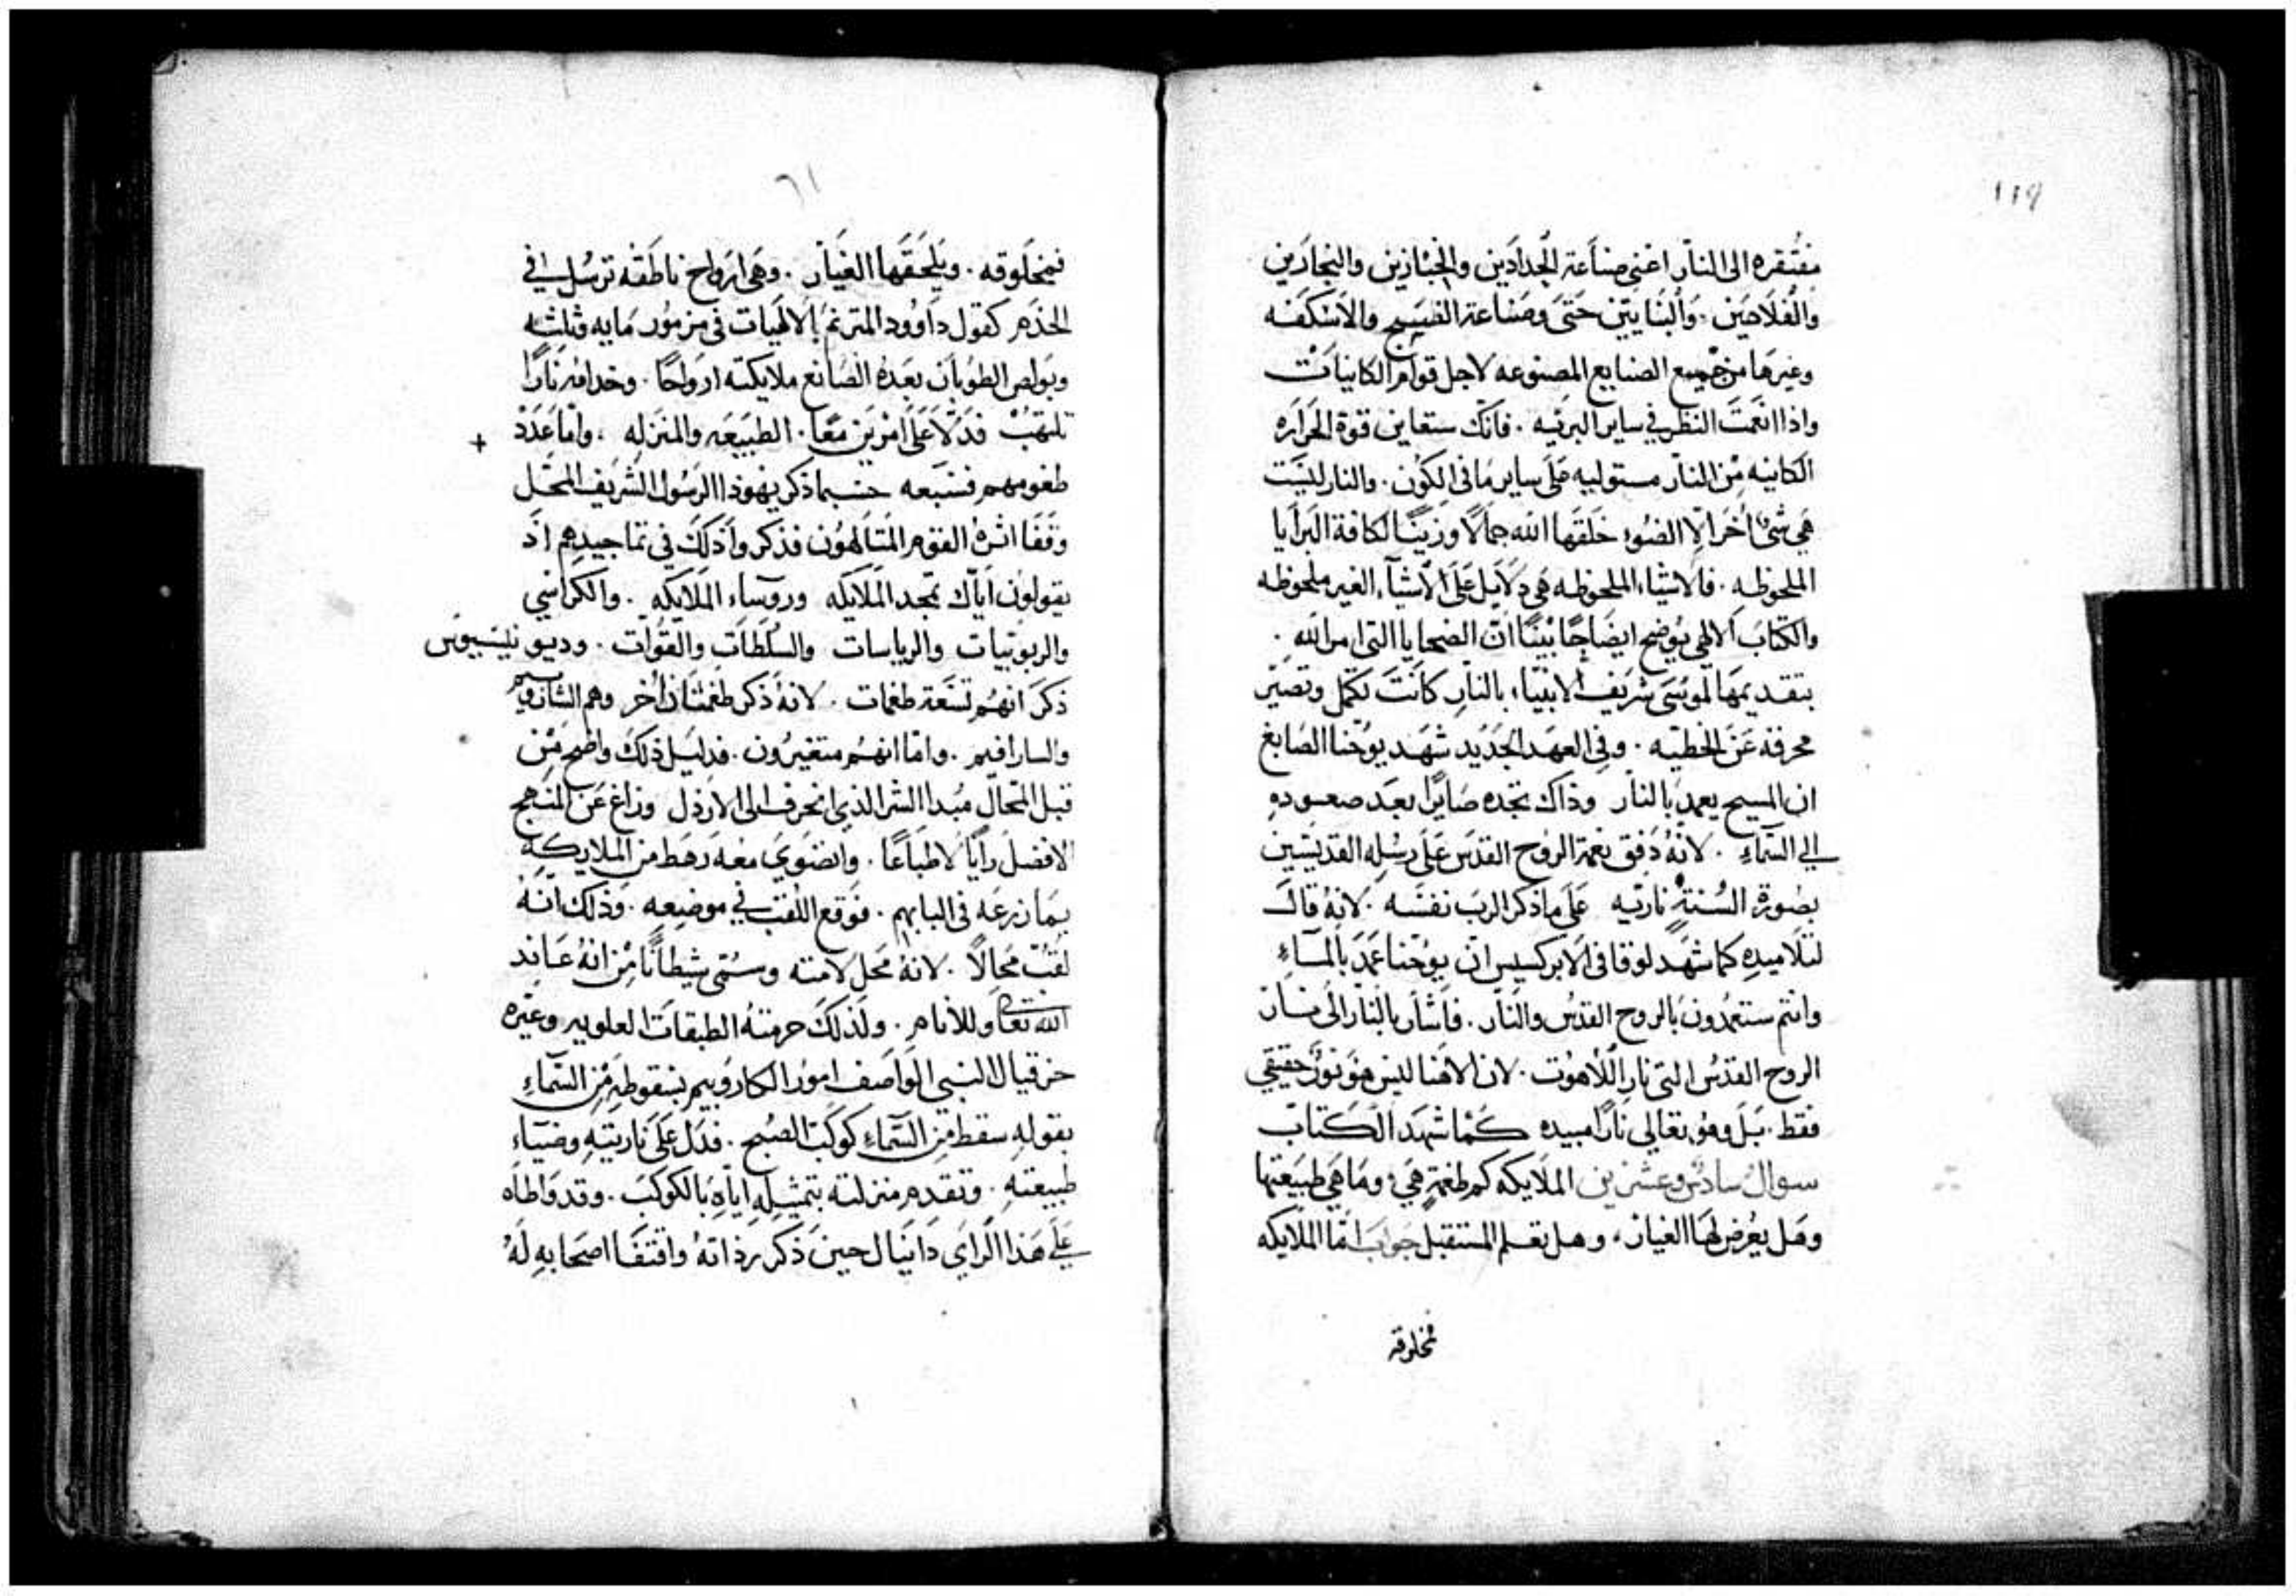 ١١٩
مفتقره الى النار اعني صناعة الحدادين والخبازين والنجارين
والفلاحين. والبنايين حتى وصناعة القسيس والاسكفه
وغيرها من جميع الصنايع المصنوعه لاجل قوام الكاينات
واذا انعمت النظر في ساير البريه. فانك ستعاين قوة الحراره
الكاينه من النار مستوليه على ساير ما في الكون. والنار ليست
هي شيء اخر الا الضوء خلقها الله جمالا وزينا لكافة البرايا
الملحوظه. فالاشياء الملحوظه هي دلايل على الاشياء الغير ملحوظه
والكتاب الالهي يوضح ايضاحا بينا ان الضحايا التي امر الله.
بتقديمها لموسى شريف الانبياء بالنار كانت تكمل وتصير
محرقة عن الخطيه. وفي العهد الجديد شهد يوحنا الصابغ
ان المسيح يعمد بالنار وذاك تجده صايرا بعد صعوده
الى السماء. لانه دفق نعمة الروح القدس على رسله القديسين
بصورة السنة ناريه على ما ذكر الرب نفسه. لانه قال
لتلاميذه كما شهد لوقا في الابركسيس ان يوحنا عمد بالماء
وانتم ستعمدون بالروح القدس والنار. فاشار بالنار الى نار
الروح القدس التي نار اللاهوت. لان الاهنا ليس هو نور حقيقي
فقط. بل وهو تعالى نارا مبيده كما شهد الكتاب
سوال سادس وعشرين الملايكه كم طغمة هي؛ وما هي طبيعتها
وهل يعرض لها الغيار، وهل تعلم المستقبل جواب اما الملايكه
مخلوقه
٦١
فمخلوقه. ويلحقها الغيار. وهي ارواح ناطقه ترسل في
الخدم كقول داوود المترنم بالالهيات في مزمور مايه وثلثه
وبولص الطوبان بعده الصانع ملايكته ارواحا. وخدامه نارا
تلتهب فدلا على امرين معا. الطبيعه والمنزله، واما عدد +
طغومهم فسبعه حسبما ذكر يهوذا الرسول الشريف المحل
وقفا اثره القوم المتالهون فذكروا ذلك في تماجيدهم اذ
يقولون اياك تمجد الملايكه وروساء الملايكه. والكراسي
والربوبيات والرياسات والسلطات والقوات. وديونيسيوس
ذكر انهم تسعة طغمات. لانه ذكر طغمتان اخر وهم الشاروبيم
والسارافيم. واما انهم متغيرون. فدليل ذلك واضح من
قبل المحال مبدا الشر الذي انحرف الى الارذل وزاغ عن المنهج
الافضل رايا لا طباعا. وانضوي معه رهط من الملايكه
بما زرعه في البابهم. فوقع اللقب في موضعه. وذلك انه
لقب محالا. لانه محل لامته وسمي شيطانا من انه عاند
الله تعالى وللانام. ولذلك حرمته الطبقات العلويه وعيره
حزقيال النبي الواصف امور الكاروبيم بسقوطه من السماء
بقوله سقط من السماء كوكب الصبح. فدل على ناريته وضياء
طبيعته. وتقدم منزلته بتمثيله اياه بالكوكب. وقد واطاه
على هذا الراي دانيال حين ذكر رذالته واقتفا اصحابه له